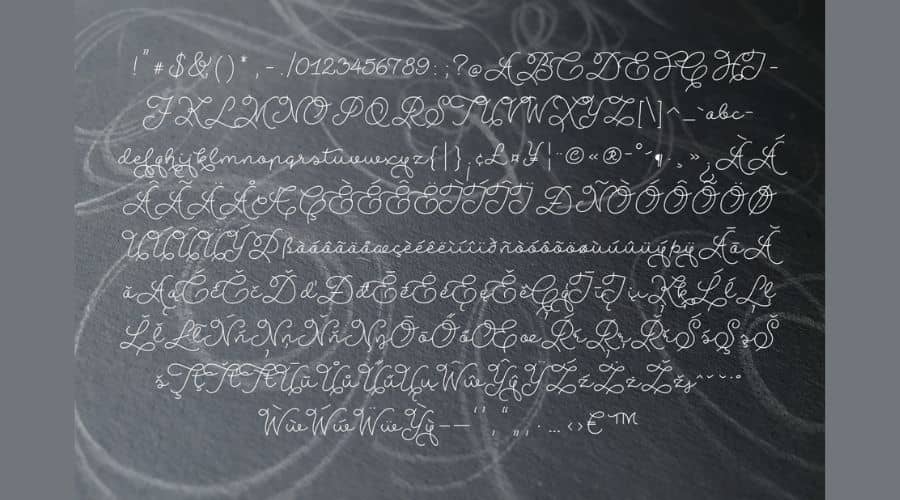 !"#$&'()*,-./0123456789:;?@ABCDEFGHI-
JKLMNOPQRSTUVWXYZ[\]^_`abc-
defghijklmnopqrstuvwxyz{|}¡¢£¤¥¦¨©«®¯°´¶·¸»¿ÀÁ
ÂÃÄÅÆÇÈÉÊËÌÍÎÏÐÑÒÓÔÕÖØ
ÙÚÛÜÝÞßàáâãäåæçèéêëìíîïðñòóôõöøùúûüýþÿĀāĂ
ăĄąĆćČčĎďĐđĒēĖėĘęĚěĢģĪīĮįıĶķĹĺĻļ
ĽľŁłŃńŅņŇňŌōŐőŒœŔŕŖŗŘřŚśŞşŠ
šŢţŤťŪūŮůŰűŲųŴŵŶŷŸŹźŻżŽžˆˇ˘˙˚
ẀẁẂẃẄẅỲỳ–—‘’‚“”„·…‹›€™